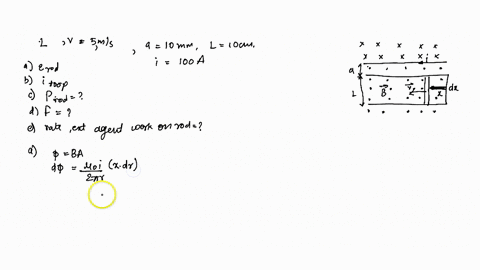 L , v = 5 m/s , a = 10 mm, L = 10 cm,
i = 100 A
a) εrod
b) i loop
c) Prod = ?
d) F = ?
e) rate, ext agent work on rod = ?
a) φ = BA
dφ = μ0i/2πr (x.dr)
x x x x x
x x x x x
i
a
L
B
v
x
dx